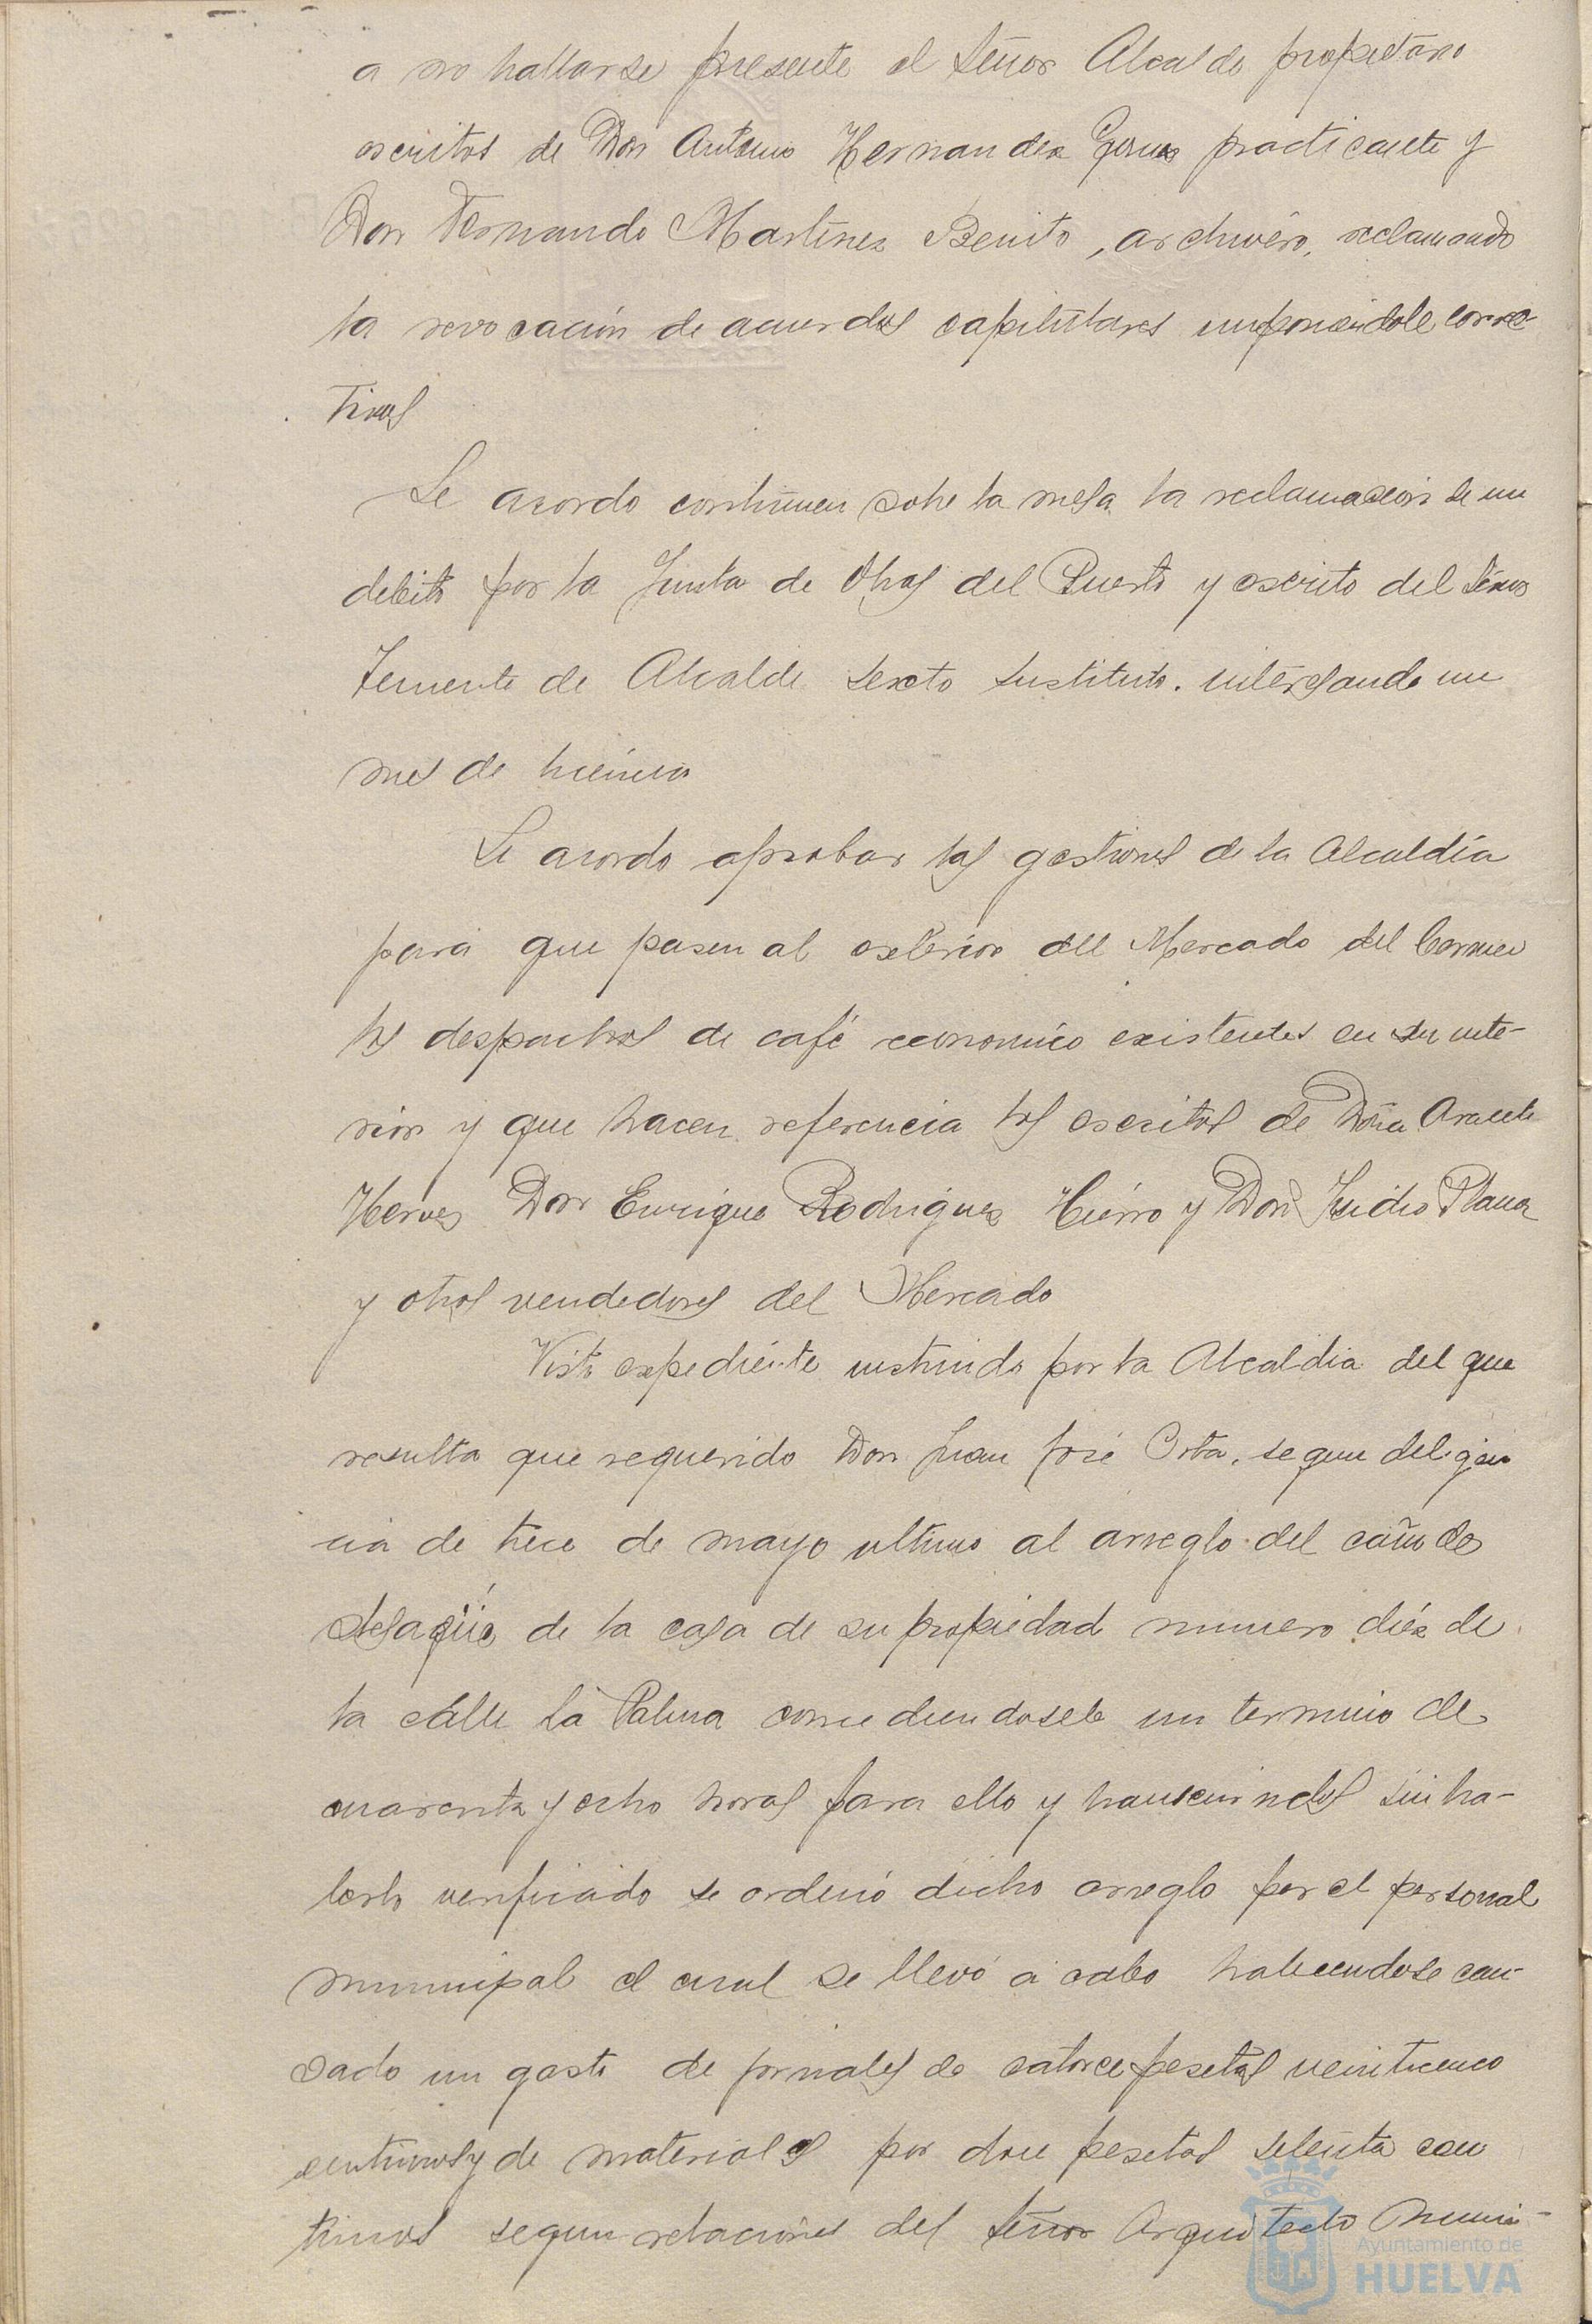 a no hallarse presente el Señor Alcalde propietario
escritos de Don Antonio Hernandez practicante y
Don Fernando Martinez Benito, archivero, reclamando
la revocación de acuerdos capitulares imponiendole correc-
tivos
Se acordo continuen sobre la mesa la reclamacion de un
debito por la Junta de Obras del Puerto y escrito del Señor
Teniente de Alcalde sexto sustituto. interesando un
mes de licencia
Se acordo aprobar las gestiones de la Alcaldía
para que pasen al exterior del Mercado del Carmen
los despachos de café economico existentes en su inte-
rior y que hacen referencia los escritos de Doña Araceli
Don Enrique Rodriguez Hierro y Don Isidro Plana
y otros vendedores del Mercado
Visto expediente instruido por la Alcaldia del que
resulta que requerido Don Juan José Orta, segun deligen
cia de trece de mayo ultimo al arreglo del caño de
desagüe de la casa de su propiedad numero diez de
la calle La Palma concediendosele un termino de
cuarenta y ocho horas para ello y transcurridos sin ha-
berlo verificado se ordenó dicho arreglo por el personal
municipal el cual se llevó a cabo habiendose cau-
sado un gasto de jornales de catorce pesetas veinticinco
centimos y de materiales por doce pesetas setenta cen
timos segun relaciones del Señor Arquitecto Muni-
Ayuntamiento de
HUELVA